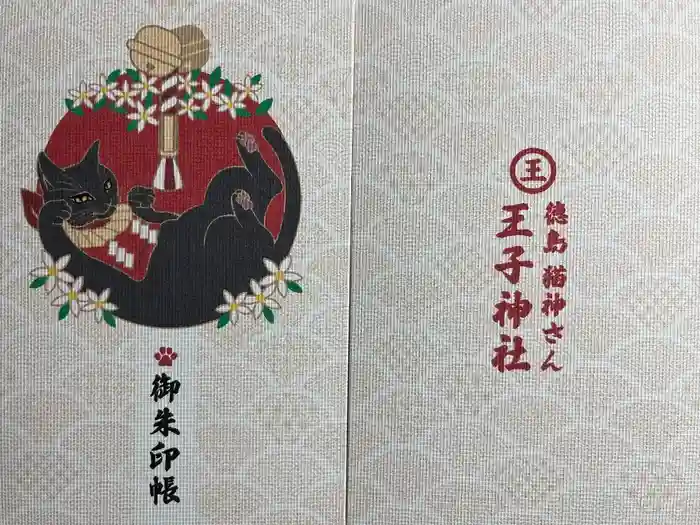 御朱印帳
王
徳島 猫神さん
王子神社